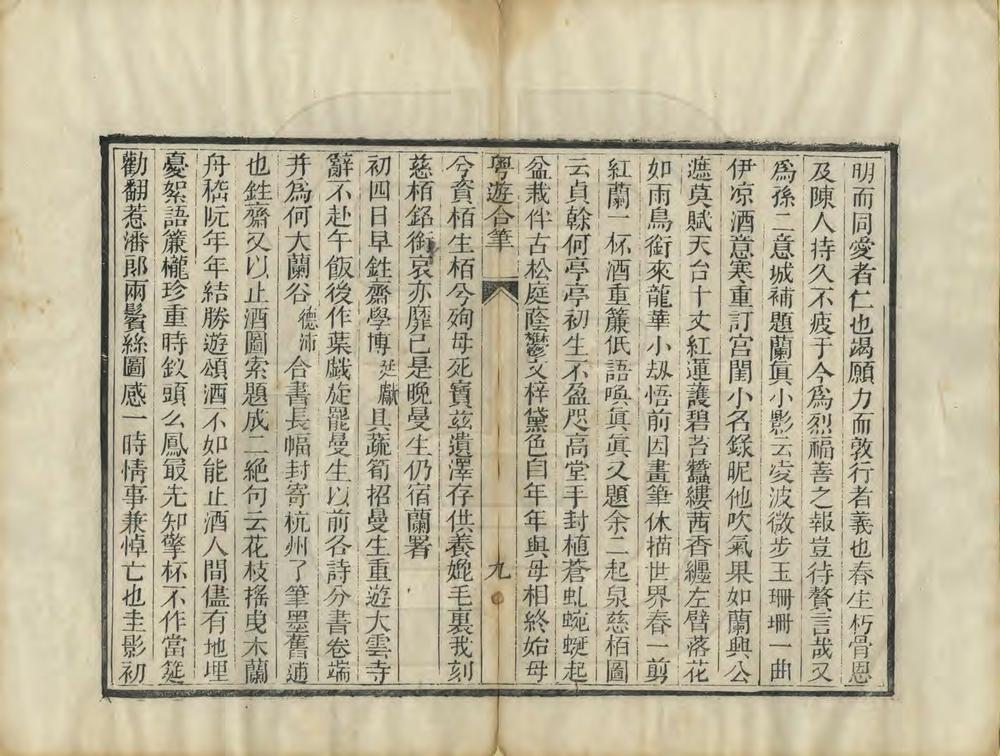 明而同愛者仁也竭願力而敦行者義也春生朽骨恩
及陳人持久不疲于今為烈福善之報豈待贅言哉又
為孫二意城補題蘭眞小影云凌波微步玉珊珊一曲
伊凉酒意寒重訂宮閨小名錄昵他吹氣果如蘭興公
遮莫賦天台十丈紅蓮護碧苔蠶縷茜香纏左臂落花
如雨鳥銜來龍華小刼悟前因畫筆休描世界春一剪
紅蘭一杯酒重簾低語喚眞眞又題余二起泉慈栢圖
云貞榦何亭亭初生不盈咫高堂手封植蒼虬蜿蜒起
盆栽伴古松庭蔭鬱文梓黛色自年年與母相終始母
兮賫栢生栢兮殉母死寶兹遺澤存供養娩毛裏我刻
慈栢銘銜哀亦靡已是晚曼生仍宿蘭署
初四日早鉎齋學博延獻具蔬筍招曼生重遊大雲寺
辭不赴午飯後作葉戲旋罷曼生以前各詩分書卷端
并為何大蘭谷德沛合書長幅封寄杭州了筆墨舊逋
也鉎齋又以止酒圖索題成二絶句云花枝搖曳木蘭
舟嵇阮年年結勝遊頌酒不如能止酒人間儘有地埋
憂絮語簾櫳珍重時釵頭么鳳最先知擎杯不作當筵
勸翻惹潘郎兩鬢絲圖感一時情事兼悼亡也圭影初
粤遊合筆
九